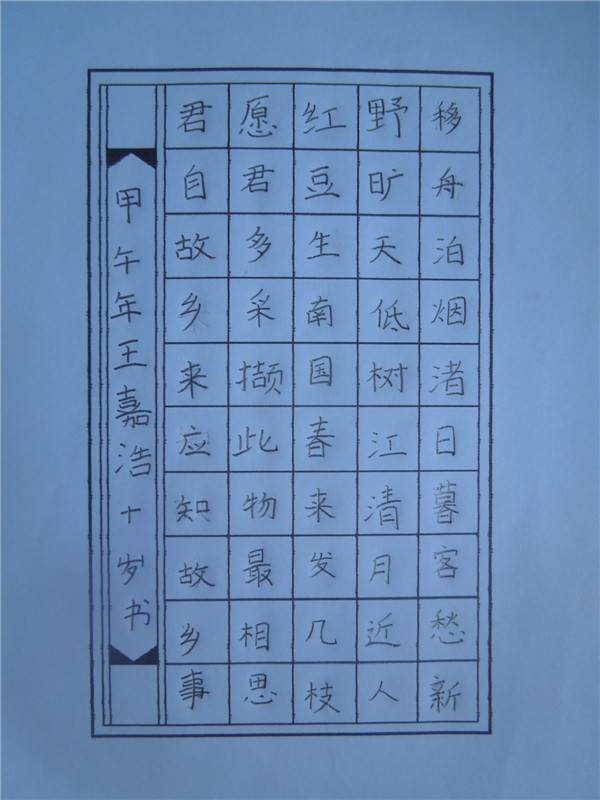 移舟泊烟渚日暮客愁新
野旷天低树江清月近人
红豆生南国春来发几枝
愿君多采撷此物最相思
君自故乡来应知故乡事
甲午年王嘉浩十岁书